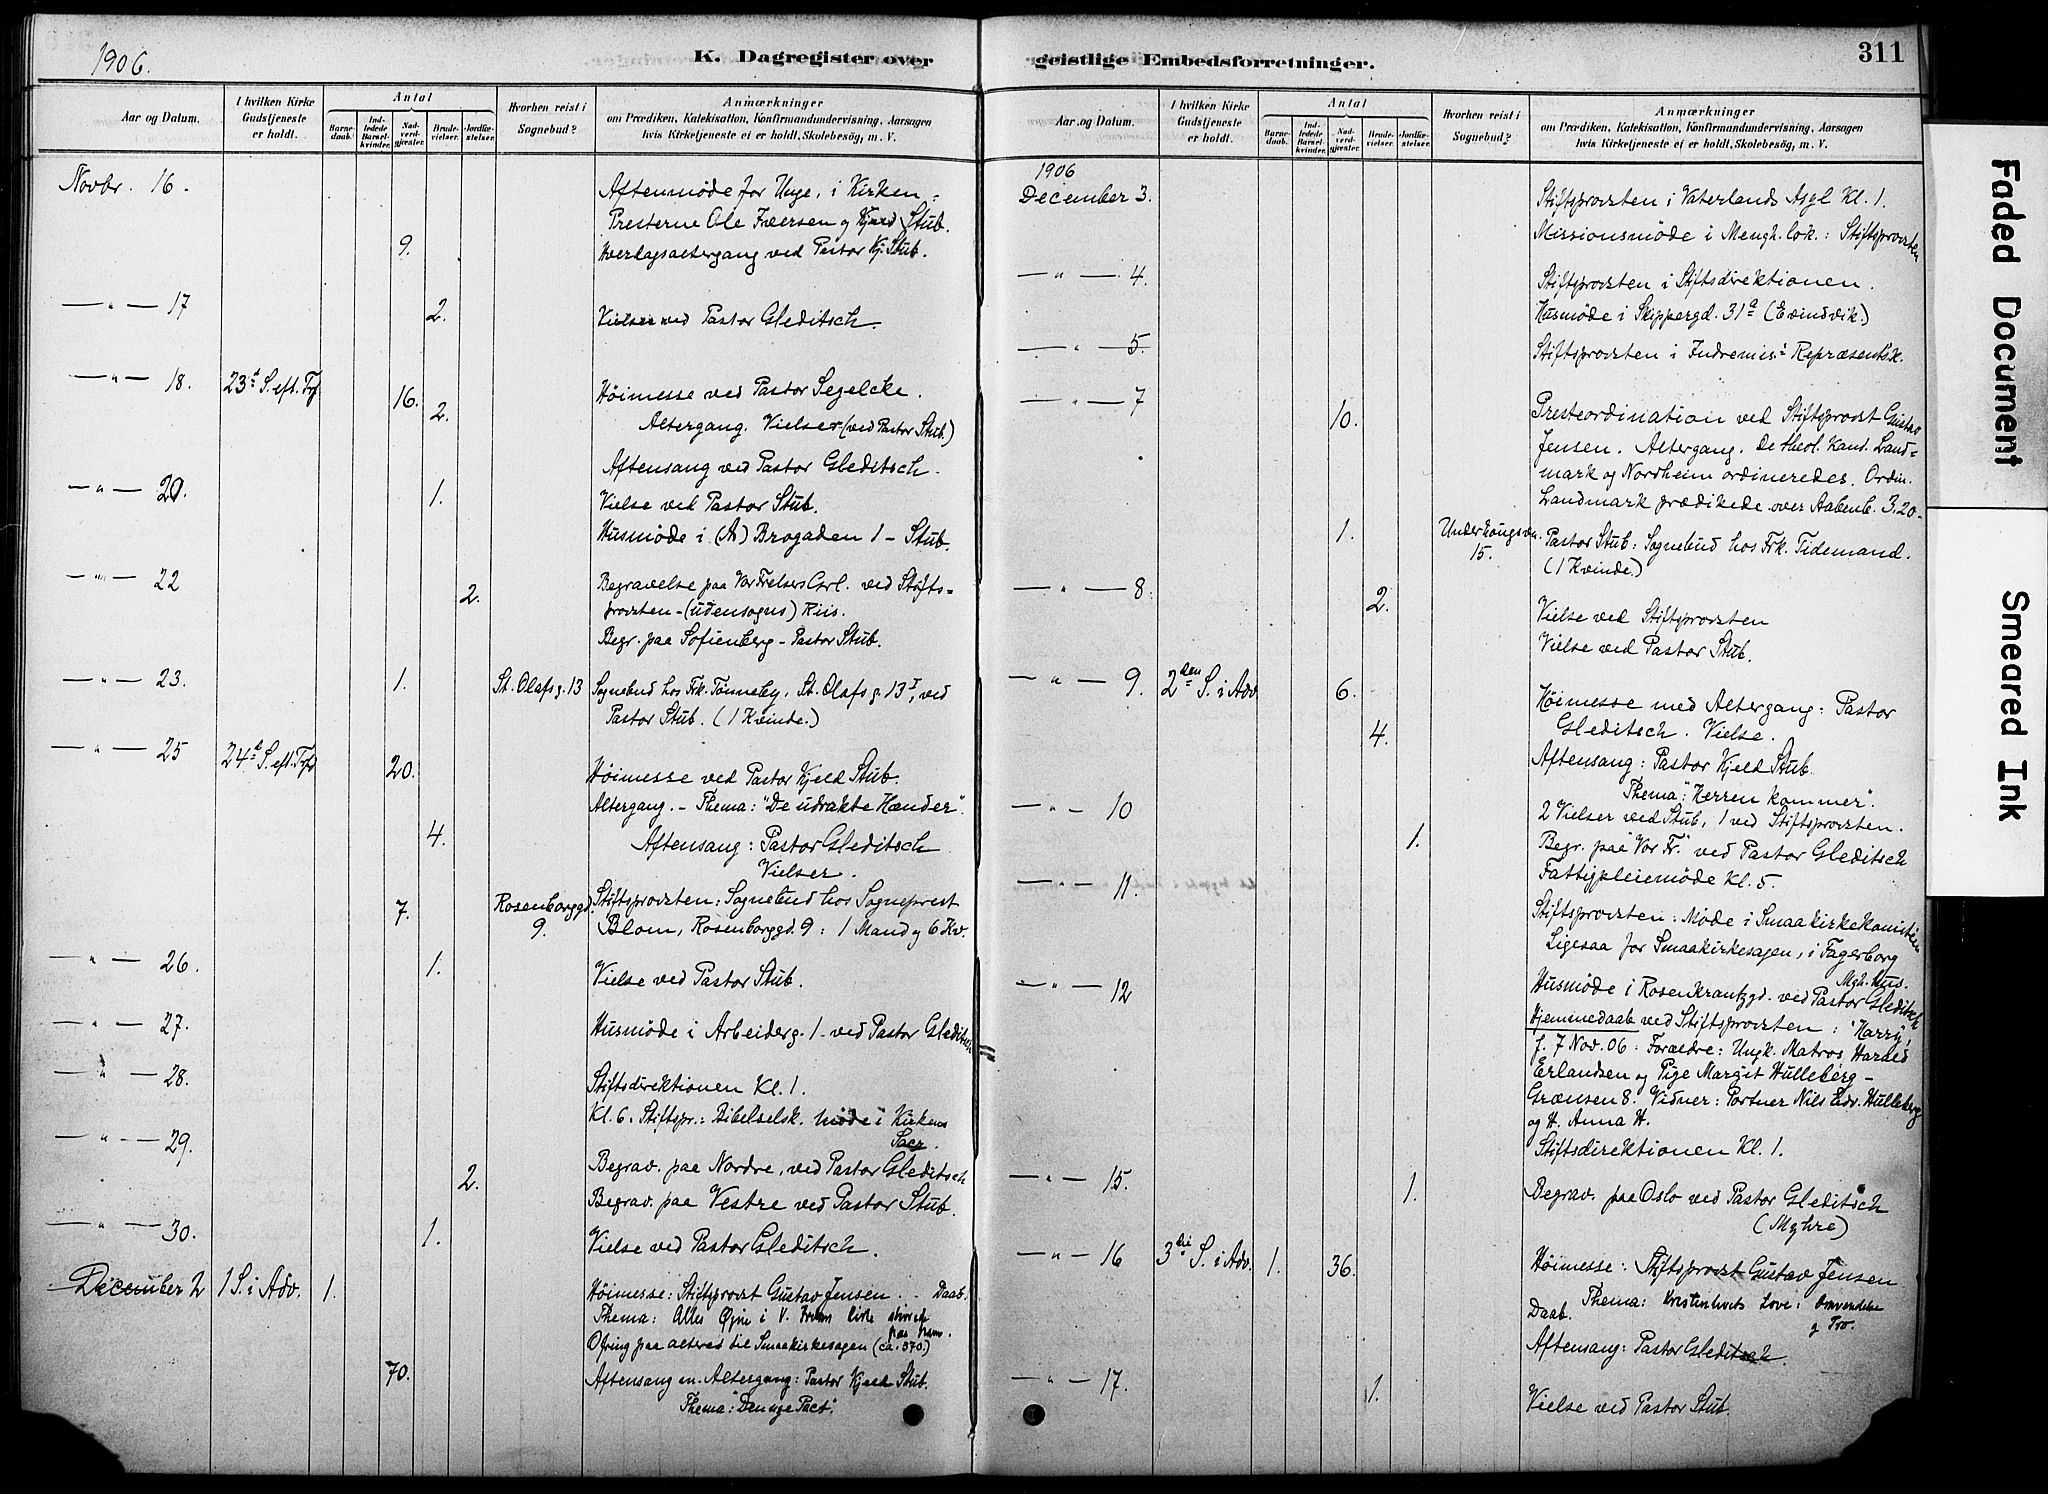 1906.
K. Dagregister over
Aar og Datum.
I hvilken Kirke Gudstjeneste er holdt.
Antal
Barnedaab.
Indledede Barselkvinder.
Nadverdgjester.
Brudevielser.
Jordfæstelser.
Hvorhen reist i Sognebud?
Anmærkninger
om Prædiken, Katekisation, Konfirmandundervisning, Aarsagen
hvis Kirketjeneste ei er holdt, Skolebesög, m. V.
Novbr. 16.
Aftenmøde for Unge, i Kirken:
Presterne Ole Iversen og Kjeld Stub.
9. Hverdagsaltergang ved Pastor Kj. Stub.
— " — 17
2. Vielser ved Pastor Gleditsch.
— " — 18. 23d S. eft. Trf 16. Høimesse ved Pastor Segelcke.
2. Altergang. Vielser (ved Pastor Stub.)
Aftensang ved Pastor Gleditsch.
— " — 20. 1. Vielse ved Pastor Stub.
Husmøde i (A) Brogaden 1 - Stub.
— " — 22 2. Begravelse paa Vor Frelsers Grl. ved Stifts-
provsten - (udensogns) Riis.
Begr. paa Sofienberg - Pastor Stub.
— " — 23. 1. St. Olafsg. 13 Sognebud hos Frk. Tønneby, St. Olafsg. 13 I, ved
Pastor Stub. (1 Kvinde.)
— " — 25 24d S. eft. Trf 20. Høimesse ved Pastor Kjeld Stub.
Altergang. - Thema: "De udrakte Hænder".
4. Aftensang: Pastor Gleditsch
Vielser.
7. Rosenborggd. 9. Stiftsprovsten: Sognebud hos Sogneprest
Blom, Rosenborggd. 9: 1 Mand og 6 Kv.
— " — 26. 1. Vielse ved Pastor Stub.
— " — 27. Husmøde i Arbeiderg. 1 - ved Pastor Gleditsch
— " — 28. Stiftsdirektionen Kl. 1.
Kl. 6. Stiftspr.: Bibelselsk. møde i Kirkens
Sacr.
— " — 29. 2. Begrav. paa Nordre, ved Pastor Gleditsch
Begrav. paa Vestre ved Pastor Stub.
— " — 30. 1. Vielse ved Pastor Gleditsch.
December 2 1 S. i Adv. 1. Høimesse: Stiftsprovst Gustav Jensen. - Daab.
Thema: Alles Øjne i V. Frelsers Kirke
paa ham.
Ofring paa alteret til Smaakirkesagen (ca. 370.)
70. Aftensang m. Altergang: Pastor Kjeld Stub.
Thema: "Den nye Pact".
geistlige Embedsforretninger.
311
Aar og Datum.
I hvilken Kirke Gudstjeneste er holdt.
Antal
Barnedaab.
Indledede Barselkvinder.
Nadverdgjester.
Brudevielser.
Jordfæstelser.
Hvorhen reist i Sognebud?
Anmærkninger
om Prædiken, Katekisation, Konfirmandundervisning, Aarsagen
hvis Kirketjeneste ei er holdt, Skolebesög, m. V.
1906
December 3. Stiftsprovsten i Vaterlands Asyl Kl. 1.
Missionsmøde i Mengh. lok.: Stiftsprovsten
— " — 4. Stiftsprovsten i Stiftsdirektionen.
Husmøde i Skippergd. 31a (Evindvik.)
— " — 5. Stiftsprovsten i Indremis: Repræsentsk.
— " — 7 10. Presteordination ved Stiftsprovst Gustav
Jensen. Altergang. De theol. Kand. Land-
mark og Nordheim ordineredes. Ordin.
Landmark prædikede over Aabenb. 3.20 -
1. Underhaugsvn. 15. Pastor Stub: Sognebud hos Frk. Tidemand.
(1 Kvinde.)
— " — 8. 2. Vielse ved Stiftsprovsten
Vielse ved Pastor Stub.
— " — 9. 2den S. i Adv 6. Høimesse med Altergang: Pastor
4. Gleditsch. Vielse.
Aftensang: Pastor Kjeld Stub.
Thema: "Herren kommer".
2 Vielser ved Stub, 1 ved Stiftsprovsten.
— " — 10 1. Begr. paa "Vor Fr." ved Pastor Gleditsch
Fattigpleiemøde Kl. 5.
— " — 11. Stiftsprovsten: Møde i Smaakirkekomitéen
Ligesaa for Smaakirkesagen, i Fagerborg
Mgh. Hus.
— " — 12 Husmøde i Rosenkrantzgd. ved Pastor Gleditsch
Hjemmedaab ved Stiftsprovsten: "Harry",
f. 7 Nov. 06. Forældre: Ungk. Matros Harald
Erlandsen og Pige Margit Hulleberg -
Grænsen 8. Vidner: Portner Nils Edv. Hulleberg
og H. Anna H.
Stiftsdirektionen Kl. 1.
— " — 15. 1. Begrav. paa Oslo ved Pastor Gleditsch
(Myhre)
— " — 16 3die S. i Adv. 1. 36. Høimesse: Stiftsprovst Gustav Jensen
Daab. Thema: Kristenlivets Love: Omvendelse
og Tro.
Aftensang: Pastor Gleditsch.
— " — 17. 1. Vielse ved Pastor Stub.
Faded Document
Smeared Ink